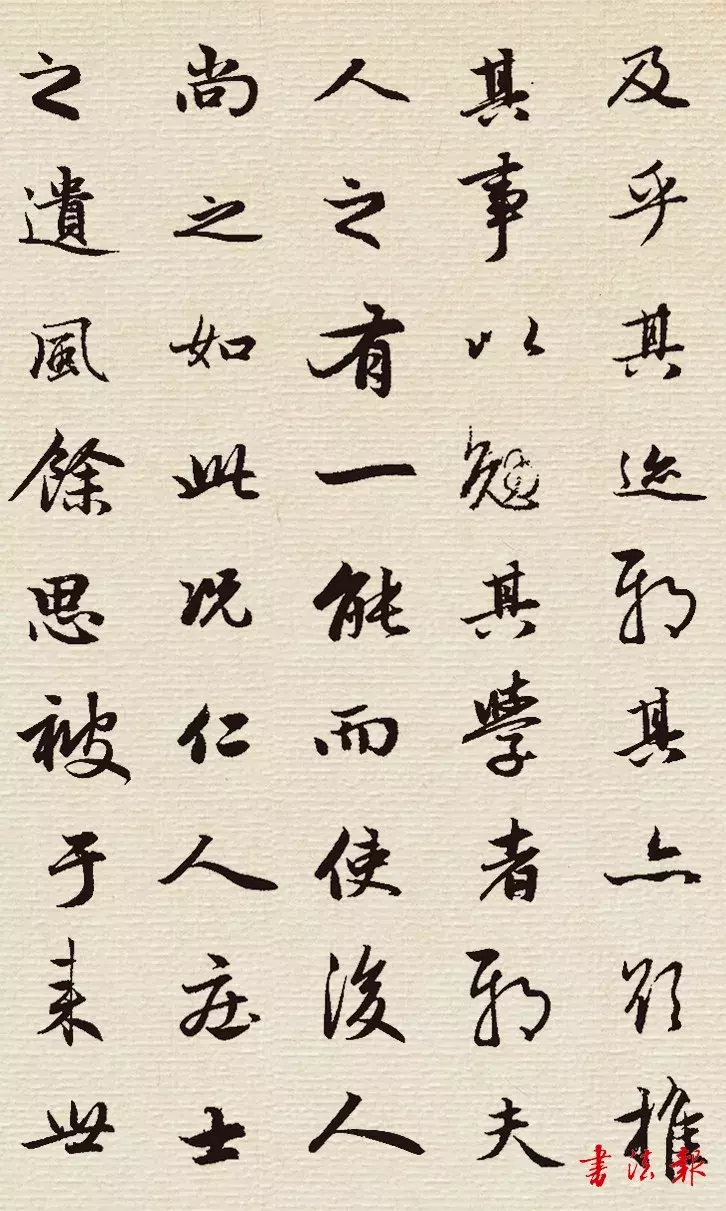 及乎其迹邪其亦欲推
其事以勉其學者邪夫
人之有一能而使後人
尚之如此况仁人莊士
之遺風餘思被于来世
书法報